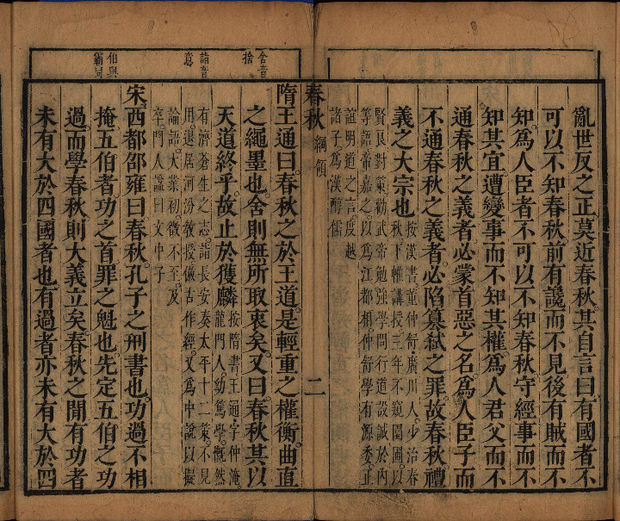 亂世反之正莫近春秋其自言曰有國者不
可以不知春秋前有讒而不見後有賊而不
知為人臣者不可以不知春秋守經事而不
知其宜遭變事而不知其權為人君父而不
通春秋之義者必蒙首惡之名為人臣子而
不通春秋之義者必陷篡弒之罪故春秋禮
義之大宗也
按漢書董仲舒廣川人少治春
秋下帷講授三年不窺園圃以
賢良對策勸武帝勉強學問行道設誠於內
等語帝嘉之以為江都相仲舒學有源委正
誼明道之言度越
諸子為漢醇儒
春秋 綱領 二
舍音
捨
隋王通曰春秋之於王道是輕重之權衡曲直
之繩墨也舍則無所取衷矣又曰春秋其以
天道終乎故止於獲麟
按隋書王通字仲淹
龍門人幼篤學慨然
詣音
意
有濟蒼生之志詣長安奏太平十二策不見
用退居河汾教授倣古作經又為中說以擬
論語大業初徵不至及
卒門人諡曰文中子
伯與
霸同
宋西都邵雍曰春秋孔子之刑書也功過不相
掩五伯者功之首罪之魁也先定五伯之功
過而學春秋則大義立矣春秋之間有功者
未有大於四國者也有過者亦未有大於四